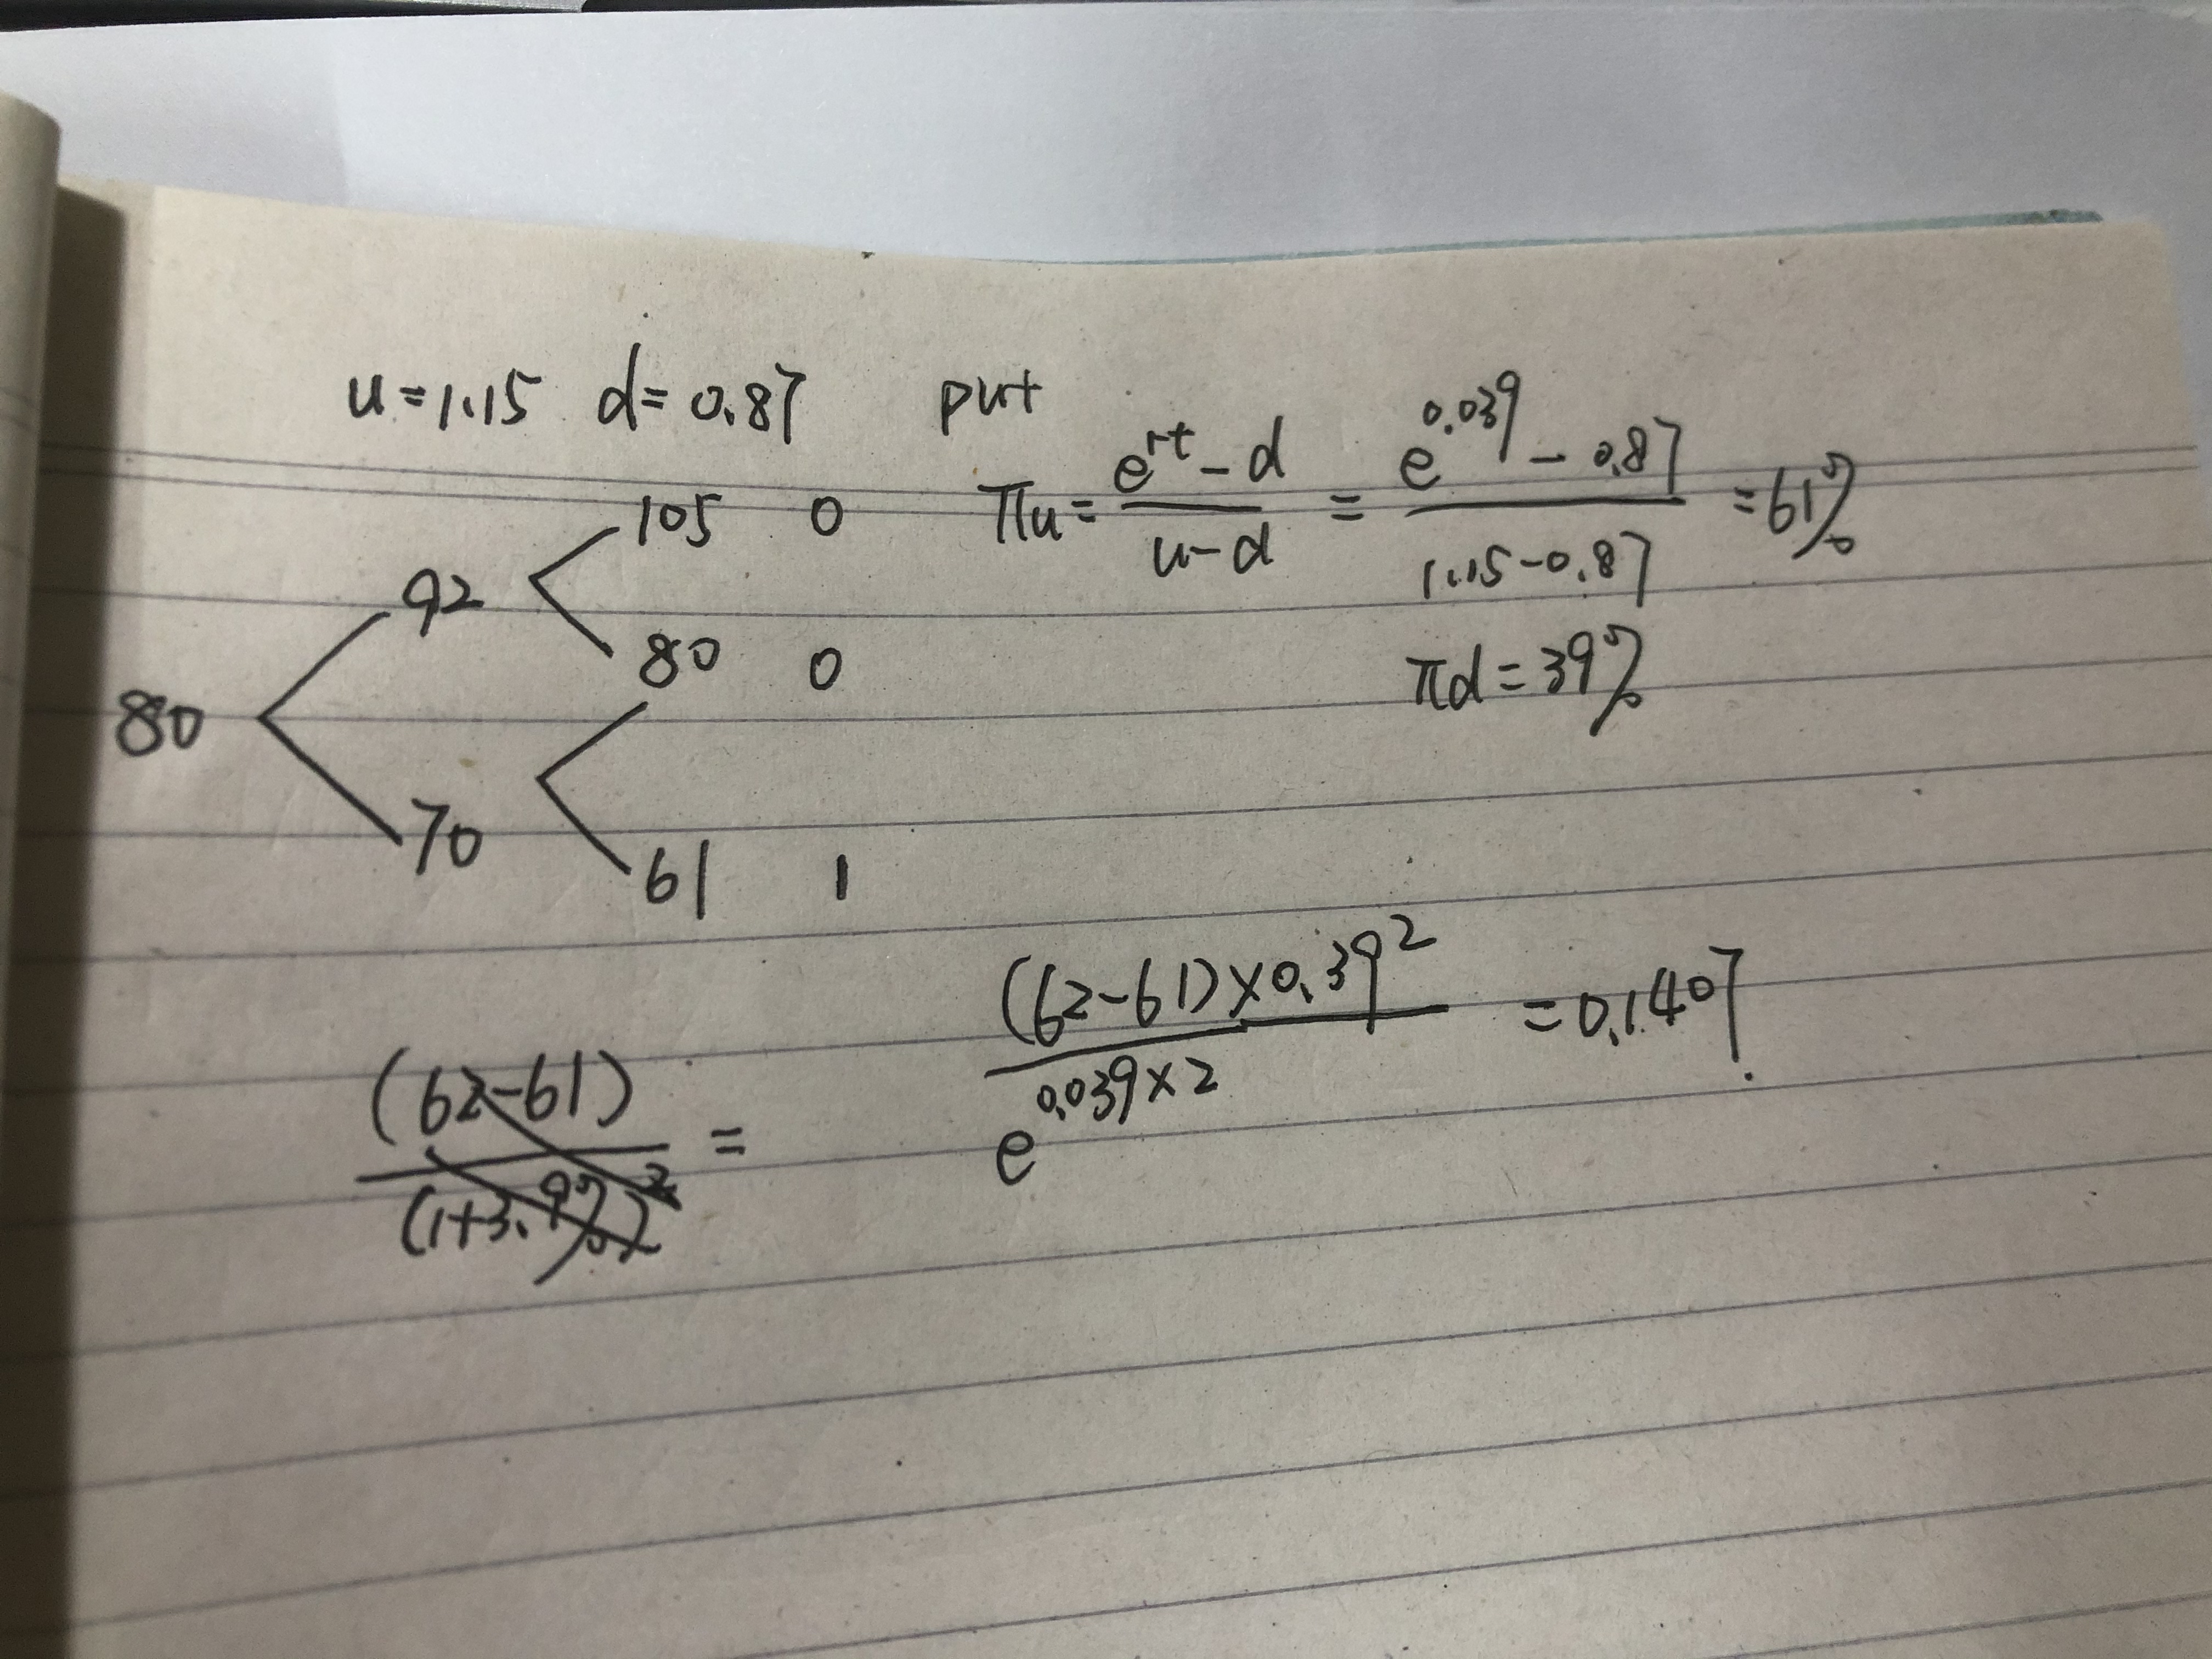 u=1.15 d=0.87 put
πu = (e^rt - d)/(u-d) = (e^0.039 - 0.87)/(1.15-0.87) = 61%
105 0
92
80 0
πd = 39%
80
70
61 1
((62-61)×0.39^2)/(e^0.039×2) = 0.1407.
(62-61)/(1+3.9%)^2 =